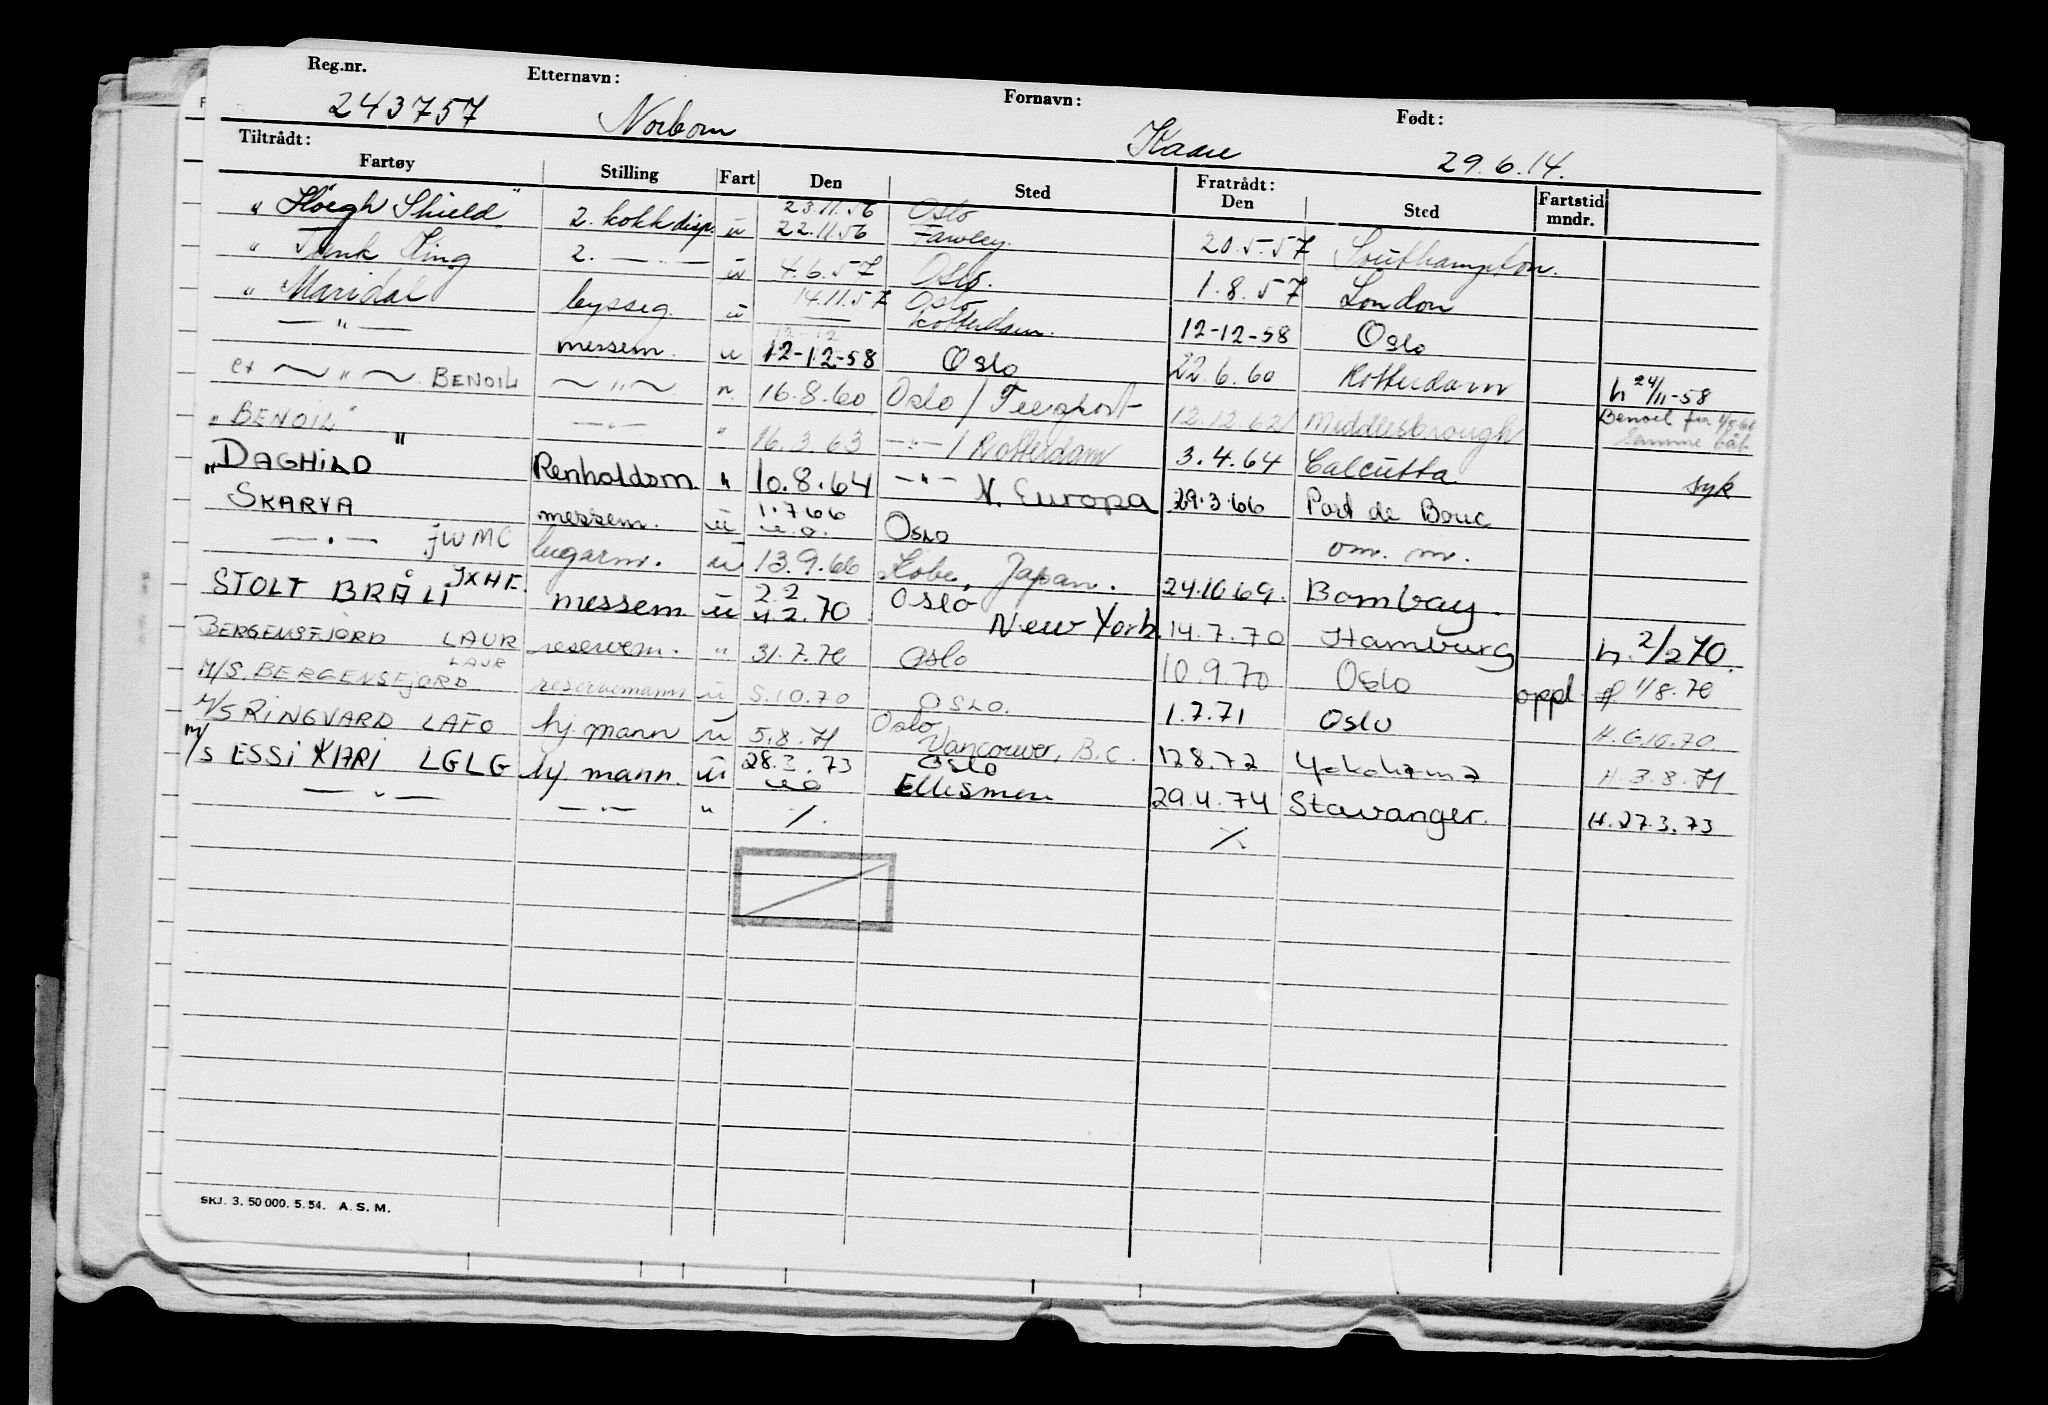 Reg.nr. Etternavn: Fornavn: Født:
243757 Norbom Kaare 29.6.14.
Tiltrådt: Fratrådt:
Fartøy Stilling Fart Den Sted Den Sted Fartstid mndr.
"Höegh Shield" 2. kokk disp. u 23.11.56 22.11.56 Oslo Fawley. 20.5.57 Southampton.
" Tank King 2. — " — u 4.6.57 Oslo. 1.8.57 London
" Maridal bysseg. u 14.11.57 Oslo Rotterdam. 12-12-58 Oslo
— " — messem. u 12-12-58 Oslo 22.6.60 Rotterdam h 24/11-58
ex ~ " ~ BENOIL ~ " ~ n. 16.8.60 Oslo / Teesport 12.12.62 Middlesbrough Benoil fra samme båt
"BENOIL" — " — " 16.3.63 — " — / Rotterdam 3.4.64 Calcutta syk
"DAGHILD" Renholdsm. " 10.8.64 — " — N. Europa 29.3.66 Port de Bouc
SKARVA messem. u 1.7.66 u.o. Oslo om. m.
— " — JWMC lugarm. u 13.9.66 Kobe, Japan. 24.10.69. Bombay.
STOLT BRÅLI JXHF. messem u 2.2 4.2.70 Oslo New York. 14.7.70 Hamburg h. 2/2 70.
BERGENSFJORD LAUR reservem. " 31.7.70 Oslo 10.9.70 Oslo oppl. 1/8.70
M/S. BERGENSFJORD LAUR reservemann u 5.10.70 OSLO. 1.7.71 Oslo H. 6.10.70
M/S RINGVARD LAFO hj. mann u 5.8.71 Oslo Vancouver, B.C. 12.8.72 Yokohama H. 3.8.71
M/S ESSI KARI LGLG hj. mann. u 28.3.73 u.o Oslo Ellesmere 29.4.74 Stavanger. H. 27.3.73
— " — — " — " ⁒ ⁒
SKJ. 3. 50 000. 5. 54. A. S. M.